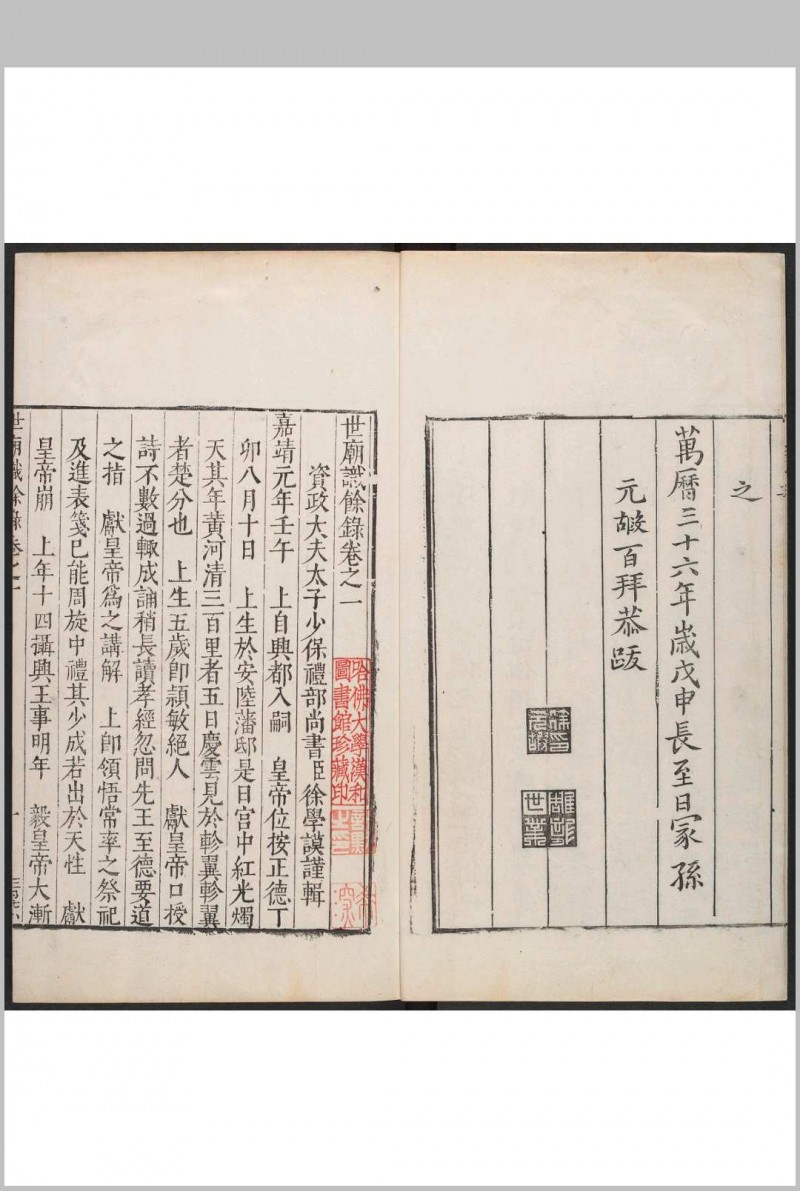 之
萬曆三十六年歲戊申長至日冢孫
元嘏百拜恭跋
世廟識餘錄卷之一
資政大夫太子少保禮部尚書臣徐學謨謹輯
嘉靖元年壬午　上自興都入嗣　皇帝位按正德丁
卯八月十日　上生於安陸藩邸是日宮中紅光燭
天其年黃河清三百里者五日慶雲見於軫翼軫翼
者楚分也　上生五歲卽頴敏絕人　獻皇帝口授
詩不數過輒成誦稍長讀孝經忽問先王至德要道
之指　獻皇帝爲之講解　上卽領悟常率之祭祀
及進表箋巳能周旋中禮其少成若出於天性　獻
皇帝崩　上年十四攝興王事明年　毅皇帝大漸
世廟識餘錄卷之一
一
哈佛大學漢和
圖書館珍藏印
世業